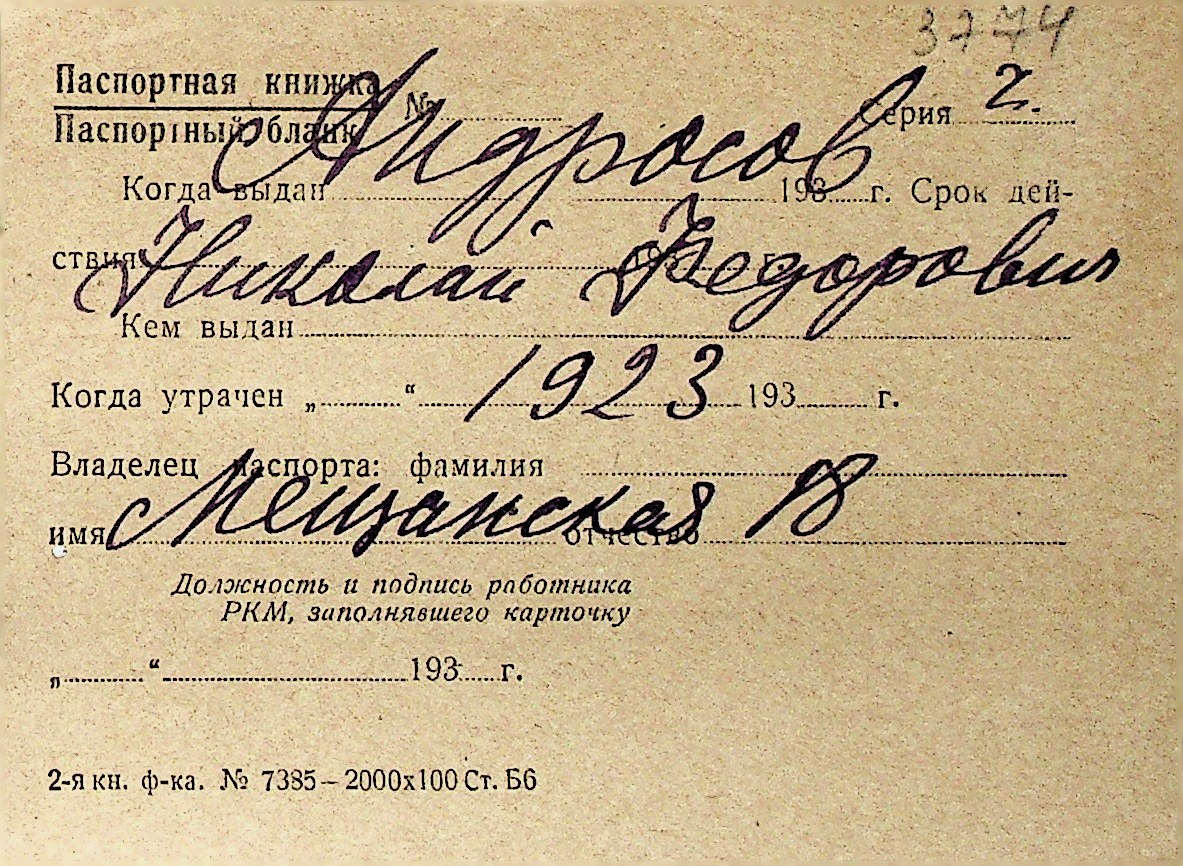 3774
Паспортная книжка
Паспортный бланк № Серия 2.
Андросов
Когда выдан 193 г. Срок дей-
ствия
Николай Федорович
Кем выдан
1923
Когда утрачен „ “ 193 г.
Владелец паспорта: фамилия
Мещанская 18
имя отчество
Должность и подпись работника
РКМ, заполнявшего карточку
„ “ 193 г.
2-я кн. ф-ка. № 7385–2000х100 Ст. Б6